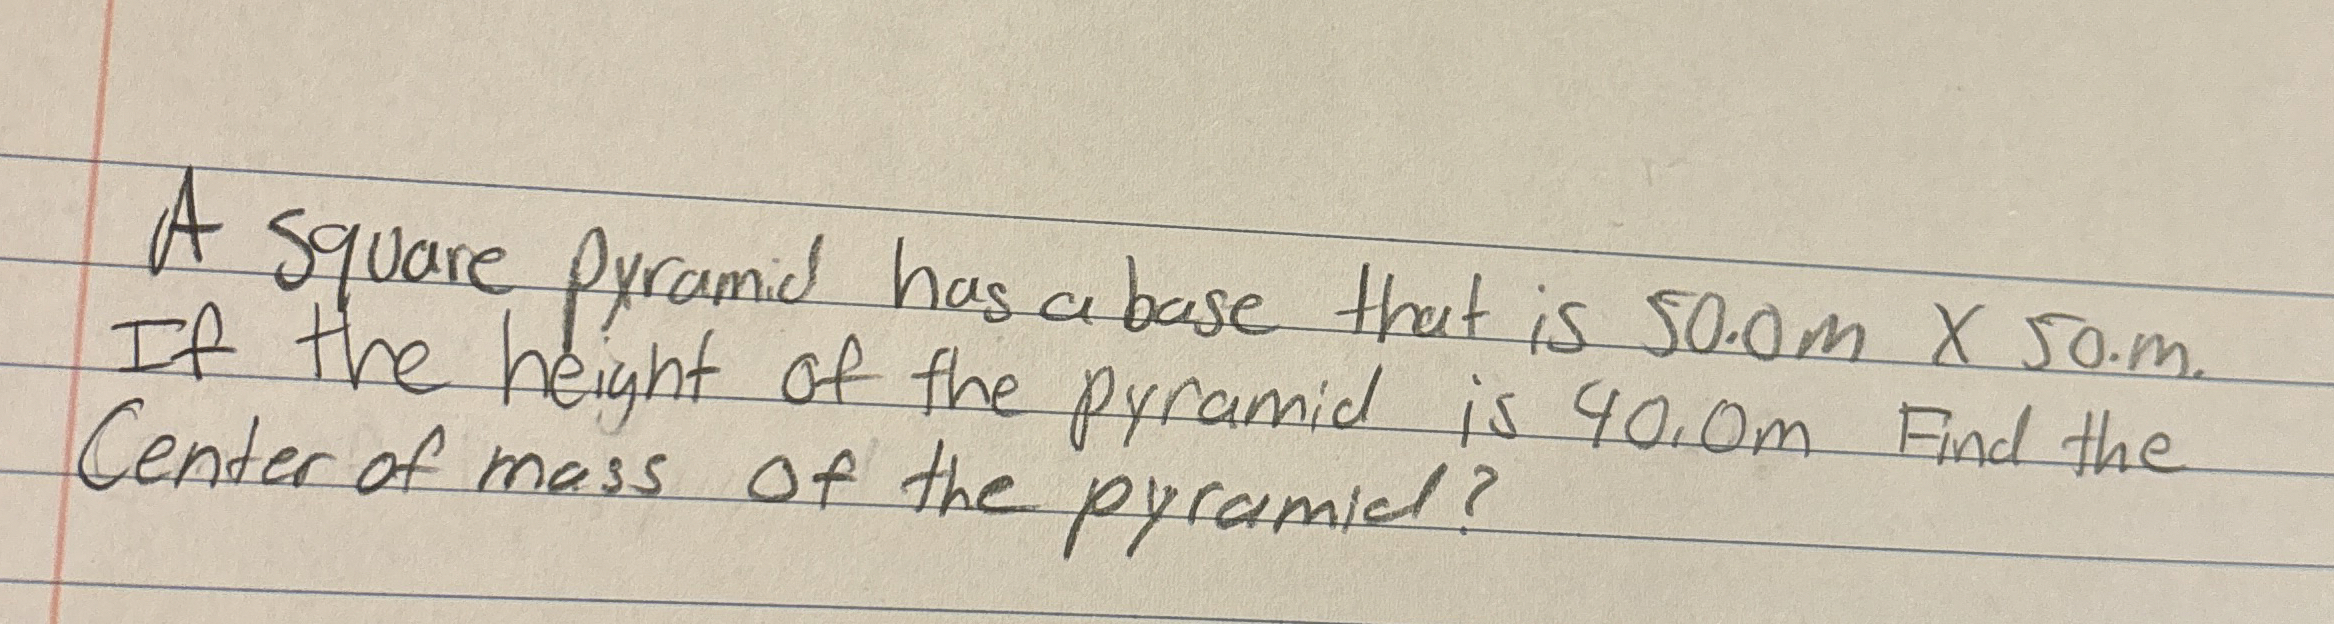 A square pyramid has a base that is 50.0m X 50.m.
If the height of the pyramid is 40.0m Find the
Center of mass of the pyramid?